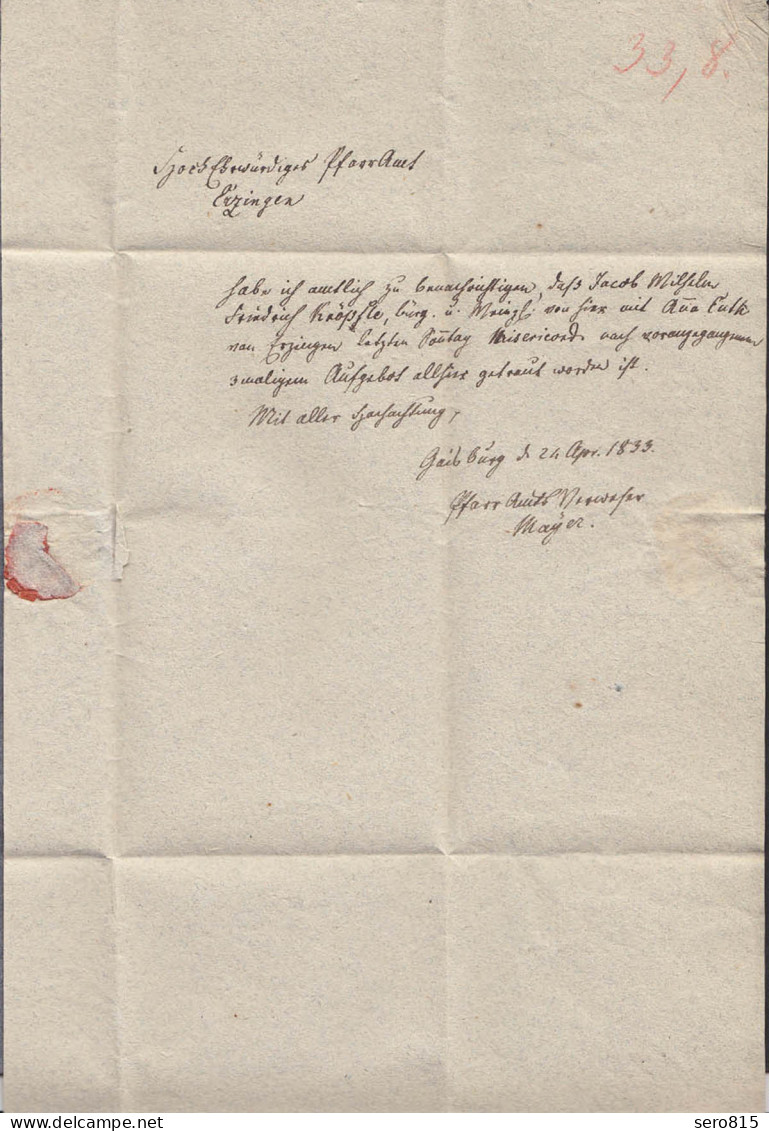 33, 8.
HochEhrwürdiges PfarrAmt
Erzingen
habe ich amtlich zu benachrichtigen, daß Jacob Wilhelm
Friedrich Kröpfle, bürg. u. von hier mit Anna
von Erzingen letzten Sonntag Misericord. nach vorangegangenem
3maligem Aufgebot allhier getraut worden ist.
Mit aller Hochachtung,
Gaisburg d. 24 Apr. 1833.
PfarrAmtsVerweser
Mayer.
sero815